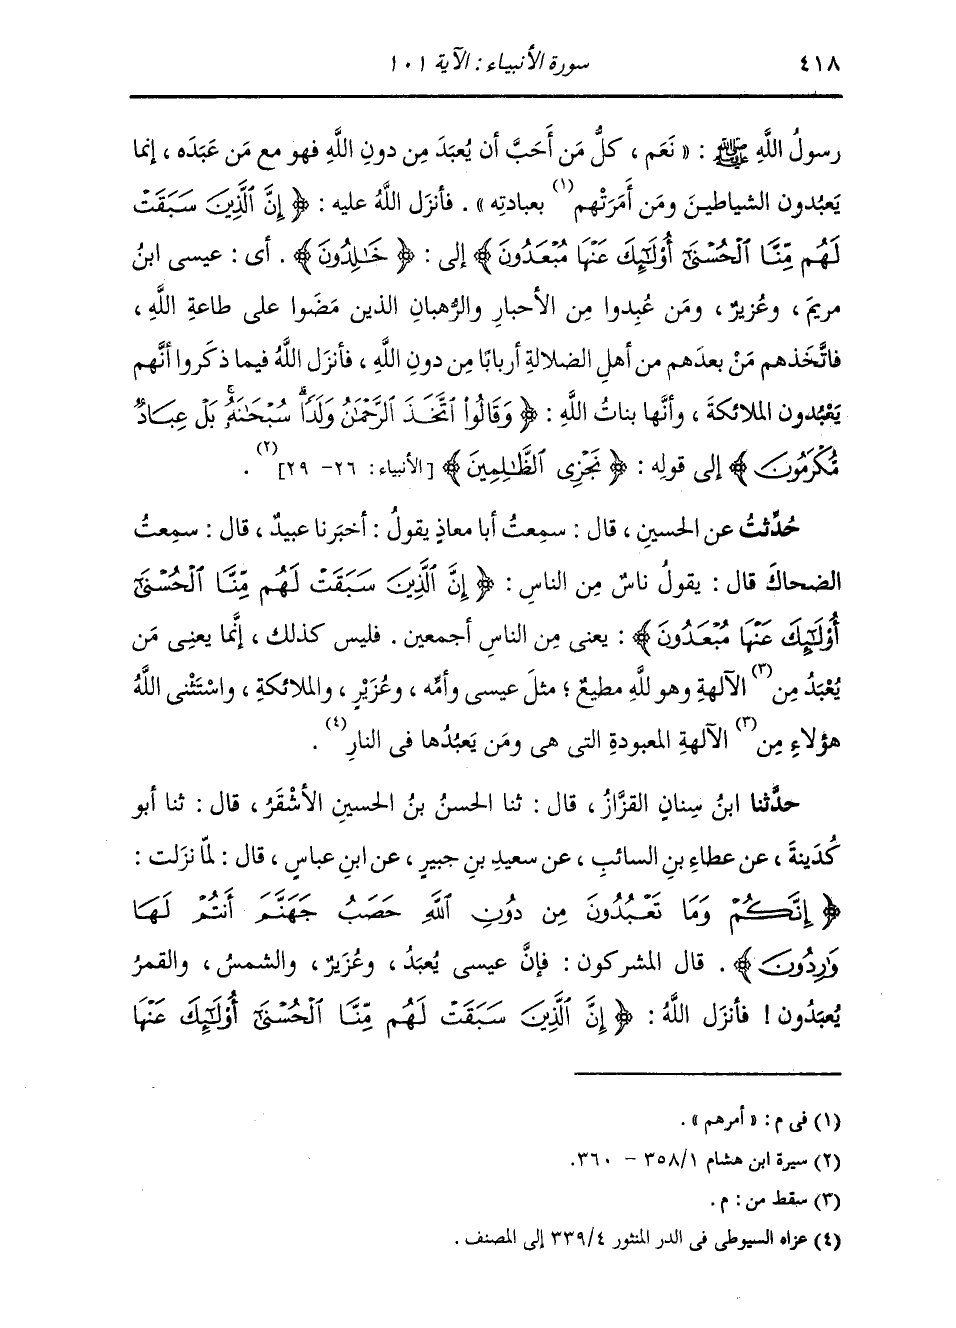 ٤١٨ سورة الأنبياء : الآية ١٠١
رسولُ اللَّهِ ﷺ : « نَعَم ، كلُّ مَن أَحَبَّ أن يُعبَدَ مِن دونِ اللَّهِ فهو مع مَن عَبَدَه ، إنما
يَعبُدون الشياطينَ ومَن أَمَرَتْهم(١) بعبادتِه » . فأنزَل اللَّهُ عليه : ﴿ إِنَّ ٱلَّذِينَ سَبَقَتْ
لَهُم مِّنَّا ٱلْحُسْنَىٰٓ أُوْلَٰٓئِكَ عَنْهَا مُبْعَدُونَ ﴾ إلى : ﴿ خَٰلِدُونَ ﴾ . أى : عيسى ابنُ
مريمَ ، وعُزيرٌ ، ومَن عُبِدوا مِن الأحبارِ والرُّهبانِ الذين مَضَوا على طاعةِ اللَّهِ ،
فاتَّخَذهم مَنْ بعدَهم من أهلِ الضلالةِ أربابًا مِن دونِ اللَّهِ ، فأنزَل اللَّهُ فيما ذكَروا أنَّهم
يَعْبُدون الملائكةَ ، وأنَّها بناتُ اللَّهِ : ﴿ وَقَالُوا۟ ٱتَّخَذَ ٱلرَّحْمَٰنُ وَلَدًا ۗ سُبْحَٰنَهُۥ ۚ بَلْ عِبَادٌ
مُّكْرَمُونَ ﴾ إلى قولِه : ﴿ نَجْزِى ٱلظَّٰلِمِينَ ﴾ [الأنبياء: ٢٦- ٢٩](٢) .
حُدِّثتُ عن الحسينِ ، قال : سمِعتُ أبا معاذٍ يقولُ : أخبَرنا عبيدٌ ، قال : سمِعتُ
الضحاكَ قال : يقولُ ناسٌ مِن الناسِ : ﴿ إِنَّ ٱلَّذِينَ سَبَقَتْ لَهُم مِّنَّا ٱلْحُسْنَىٰٓ
أُوْلَٰٓئِكَ عَنْهَا مُبْعَدُونَ ﴾ : يعنى مِن الناسِ أجمعين . فليس كذلك ، إنَّما يعنِى مَن
يُعْبَدُ مِن(٣) الآلهةِ وهو للَّهِ مطيعٌ ؛ مثلَ عيسى وأمِّه ، وعُزَيْرٍ ، والملائكةِ ، واسْتَثْنى اللَّهُ
هؤلاءِ مِن(٣) الآلهةِ المعبودةِ التى هى ومَن يَعبُدُها فى النارِ(٤) .
حدَّثنا ابنُ سِنانٍ القزَّازُ ، قال : ثنا الحسنُ بنُ الحسينِ الأشْقَرُ ، قال : ثنا أبو
كُدَينةَ ، عن عطاءِ بنِ السائبِ ، عن سعيدِ بنِ جبيرٍ ، عن ابنِ عباسٍ ، قال : لمَّا نزَلت :
﴿ إِنَّكُمْ وَمَا تَعْبُدُونَ مِن دُونِ ٱللَّهِ حَصَبُ جَهَنَّمَ أَنتُمْ لَهَا
وَٰرِدُونَ ﴾ . قال المشركون : فإنَّ عيسى يُعبَدُ ، وعُزَيرٌ ، والشمسُ ، والقمرُ
يُعبَدُون ! فأنزَل اللَّهُ : ﴿ إِنَّ ٱلَّذِينَ سَبَقَتْ لَهُم مِّنَّا ٱلْحُسْنَىٰٓ أُوْلَٰٓئِكَ عَنْهَا
(١) فى م : « أمرهم » .
(٢) سيرة ابن هشام ٣٥٨/١ - ٣٦٠.
(٣) سقط من : م .
(٤) عزاه السيوطى فى الدر المنثور ٣٣٩/٤ إلى المصنف .